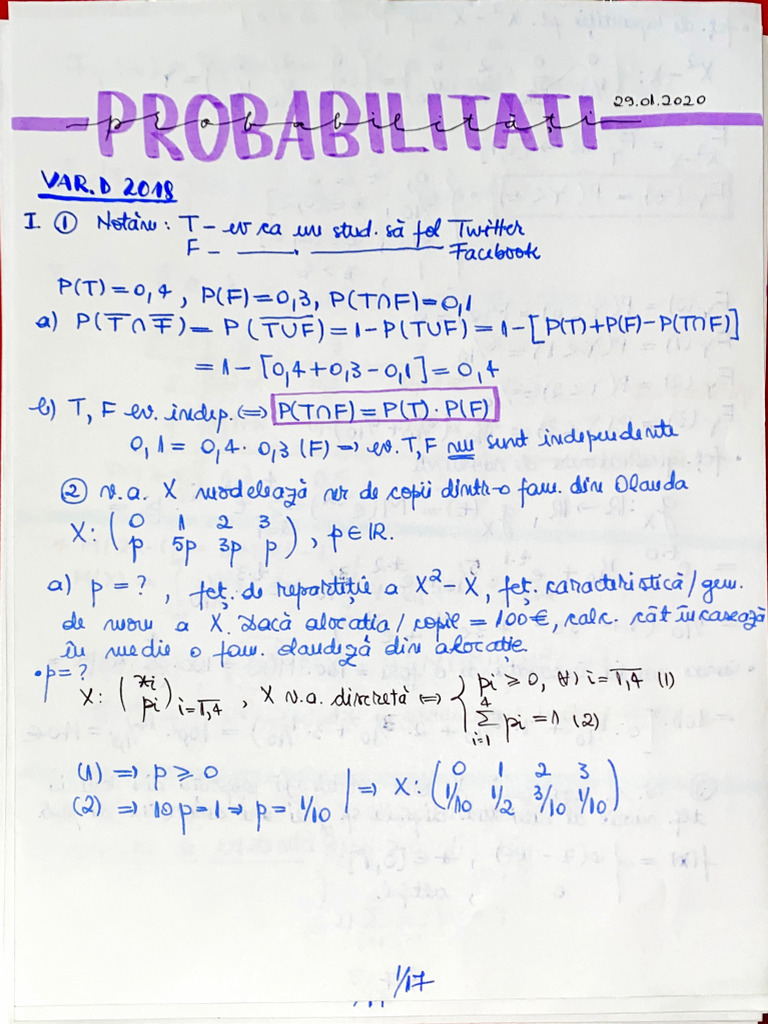 PROBABILITATI
probabilități
29.01.2020
VAR. D 2018
I. ① Notăm: T – ev ca un stud. să fol Twitter
F – ——— . ————— Facebook
P(T)=0,4, P(F)=0,3, P(T∩F)=0,1
a) P(T̅∩F̅)= P(\overline{T∪F})=1-P(T∪F)=1-[P(T)+P(F)-P(T∩F)]
=1-[0,4+0,3-0,1]=0,4
b) T, F ev. indep. ⟺ P(T∩F)=P(T)·P(F)
0,1= 0,4·0,3 (F) → ev. T,F nu sunt independente
② v.a. X modelează nr de copii dintr-o fam. din Olanda
X: ( 0 1 2 3
p 5p 3p p ), p∈ℝ.
a) p=?, fct. de repartiție a X²-X, fct. caracteristică/gen.
de mom a X. Dacă alocatia/copie = 100€, calc. cât încasează
în medie o fam. olandeză din alocatie.
• p=?
X: ( xi
pi ) i=\overline{1,4}, X v.a. discretă ⟺ { pi ≥ 0, (∀) i=\overline{1,4} (1)
\sum_{i=1}^{4} pi = 1 (2)
(1) ⟹ p ≥ 0
(2) ⟹ 10p=1 ⇒ p= 1/10 | ⟹ X: ( 0 1 2 3
1/10 1/2 3/10 1/10 )
1/17